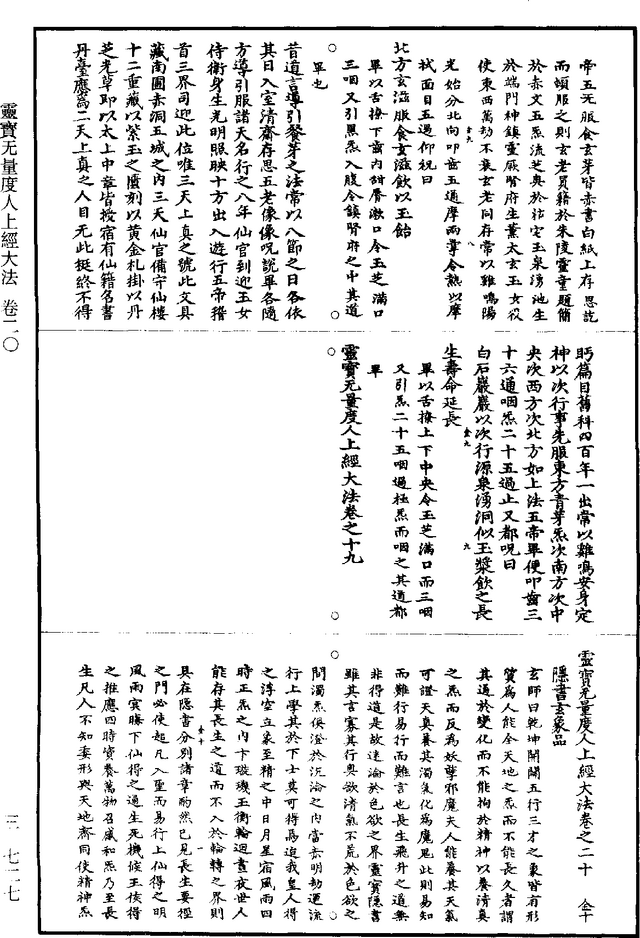 帝五炁服食玄芽皆赤書白紙上存思訖
而頓服之則玄老員籍於朱陵靈童題簡
於赤文五炁流芝奧於祐宅玉泉湧池生
於端門神鎮靈扆腎府生華太玄玉女役
使東西萬劫不衰玄老同存常以雞鳴陽
光始分北向叩齒五通摩兩掌令熱以摩
拭面目五過仰祝曰
北方玄滋服食玄滋飲以玉飴
畢以舌撩下齒內甜脣漱口令玉芝滿口
三咽又引黑炁入腹令鎮腎府之中其道
畢也
昔道言導引餐芽之法常以八節之日各依
其日入室清齋存思五老像像呪說畢各隨
方導引服諸天名行之八年仙官到迎玉女
侍衛身生光明照映十方出入遊行五帝稽
首三界司迎此位唯三天上真之號此文具
藏南圃赤洞五城之內三天仙官備守仙樓
十二重藏以紫玉之匱刻以黃金札掛以丹
芝光草即以太上中章皆授宿有仙籍名書
丹臺應為二天上真之人目无此挺終不得
眄篇目舊科四百年一出常以雞鳴安身定
神以次行事先服東方青芽炁次南方次中
央次西方次北方如上法五帝畢便叩齒三
十六通咽炁二十五過止又都呪曰
白石巖巖以次行源泉湧洞似玉漿飲之長
生壽命延長
畢以舌撩上下中央令玉芝滿口而三咽
又引炁二十五咽過極炁而咽之其道都
畢
靈寶无量度人上經大法卷之十九
靈寶无量度人上經大法卷之二十 金十
隱書玄象品
玄師曰乾坤開闢五行三才之象皆有形
質為人能全天地之炁而不能長久者謂
其過於變化而不能拘於精神以養清真
之炁而反為妖孽邪魔夫人能養其天氣
可證天真養其濁氣化為魔鬼此則易知
而難行易行而難言也長生飛升之道無
非得道是故迷淪於色欲之界靈寶隱書
雖其言寡其行奧欲清氣不荒於色欲之
間濁炁俟澄於沉淪之內當赤明劫運流
行上學其於下士莫可得焉迫我皇人得
之浮空立象至精之中日月星宿風雨四
時正炁之內卞璇璣玉衡輪迴晝夜世人
能存其長生之道而不入於輪轉之界則
具在隱書分別諸章酌然已見長生要徑
之門必使超凡入聖而易行上仙得之明
風雨雲騰下仙得之過生死機候王侯得
之推應四時資養萬物召感和炁乃至長
生凡人不知委形與天地齊同使精神炁
靈寶无量度人上經大法 卷二〇
三·七二七